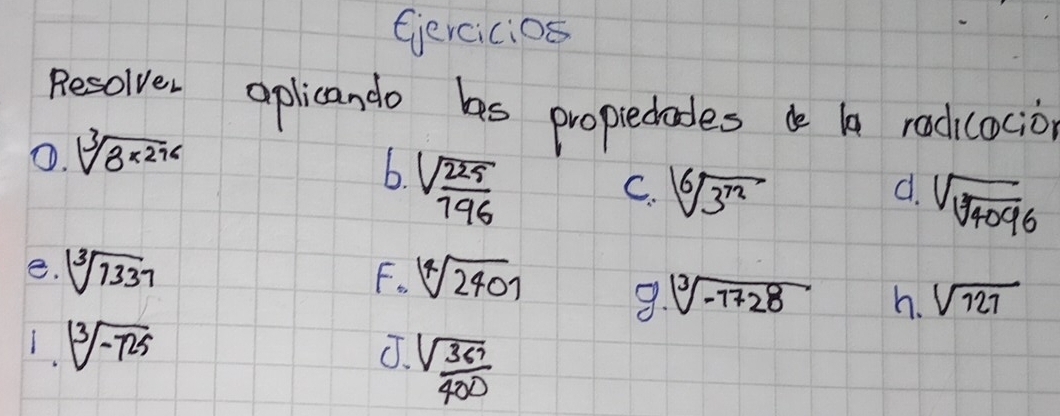 Ejercicios
Resolver aplicando las propiedades de la radicación
a. ∛(8×216) b. √(225/196) c. ⁶√(3¹²) d. √(∛4096)
e. ∛1331 F. ∜2401 g. ∛-1728 h. √121
i. ∛-125 J. √(361/400)